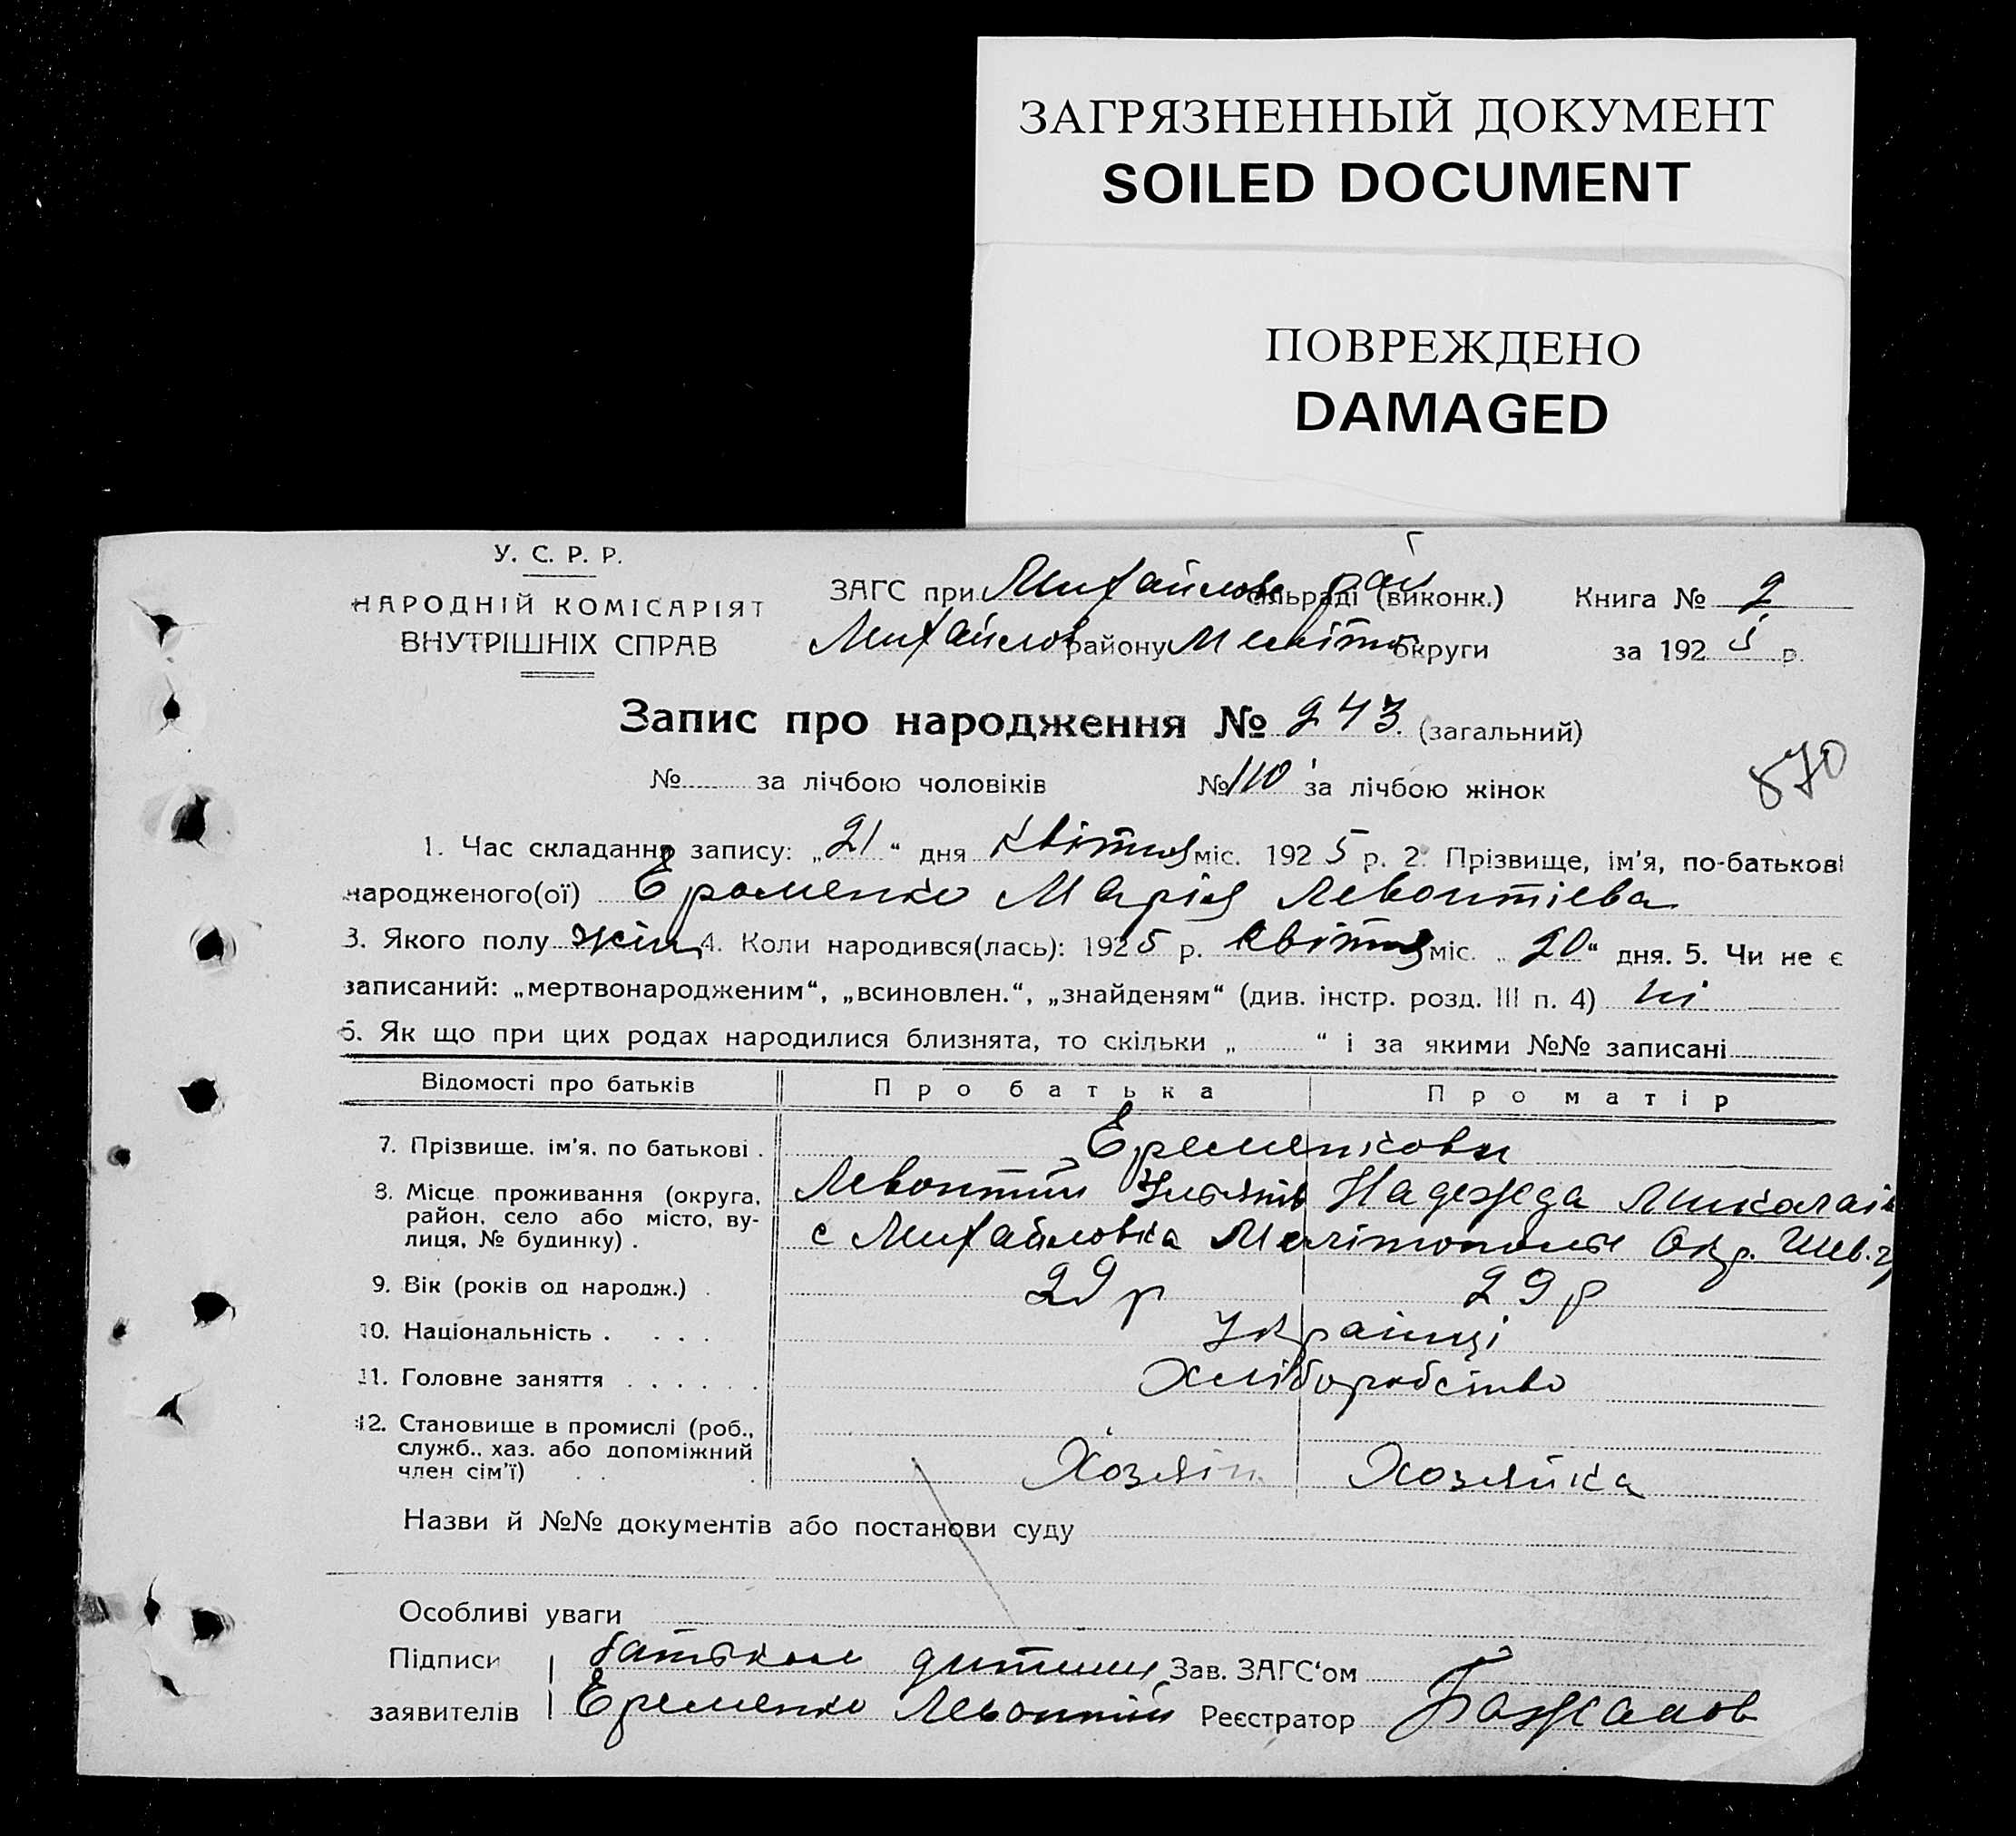 ЗАГРЯЗНЕННЫЙ ДОКУМЕНТ
SOILED DOCUMENT
ПОВРЕЖДЕНО
DAMAGED
У. С. Р. Р.
НАРОДНІЙ КОМІСАРІЯТ
ВНУТРІШНІХ СПРАВ
ЗАГС при Михайлов сільраді рай (виконк.) Книга № 2
Михайлов району Меліто округи за 1925 р.
Запис про народження № 243. (загальний)
№ за лічбою чоловіків № 110 за лічбою жінок
870
1. Час складання запису: „21“ дня Квітня міс. 1925 р. 2. Прізвище, ім'я, по-батькові
народженого(ої) Ероменко Марія Левонтіева
3. Якого полу жін 4. Коли народився(лась): 1925 р. Квітня міс. „20“ дня. 5. Чи не є
записаний: „мертвонародженим“, „всиновлен.“, „знайденям“ (див. інстр. розд. III п. 4) ні
6. Як що при цих родах народилися близнята, то скільки „ “ і за якими №№ записані
Відомості про батьків Про батька Про матір
7. Прізвище, ім'я, по батькові . Еременкови
8. Місце проживання (округа, Левонтій Надежда Миколаів
район, село або місто, ву- с Михайловка Мелітопольс Окр.
лиця, № будинку) .
9. Вік (років од народж.) . 29 р 29 р
10. Національність . . . . Українці
11. Головне заняття . . . . . . Хліборобство
12. Становище в промислі (роб.,
служб., хаз. або допоміжний Хозяін Хозяйка
член сім'ї) . . .
Назви й №№ документів або постанови суду
Особливі уваги
Підписи батьком дитини Зав. ЗАГС'ом
заявителів Еременко Левонтій Реєстратор Бажанов